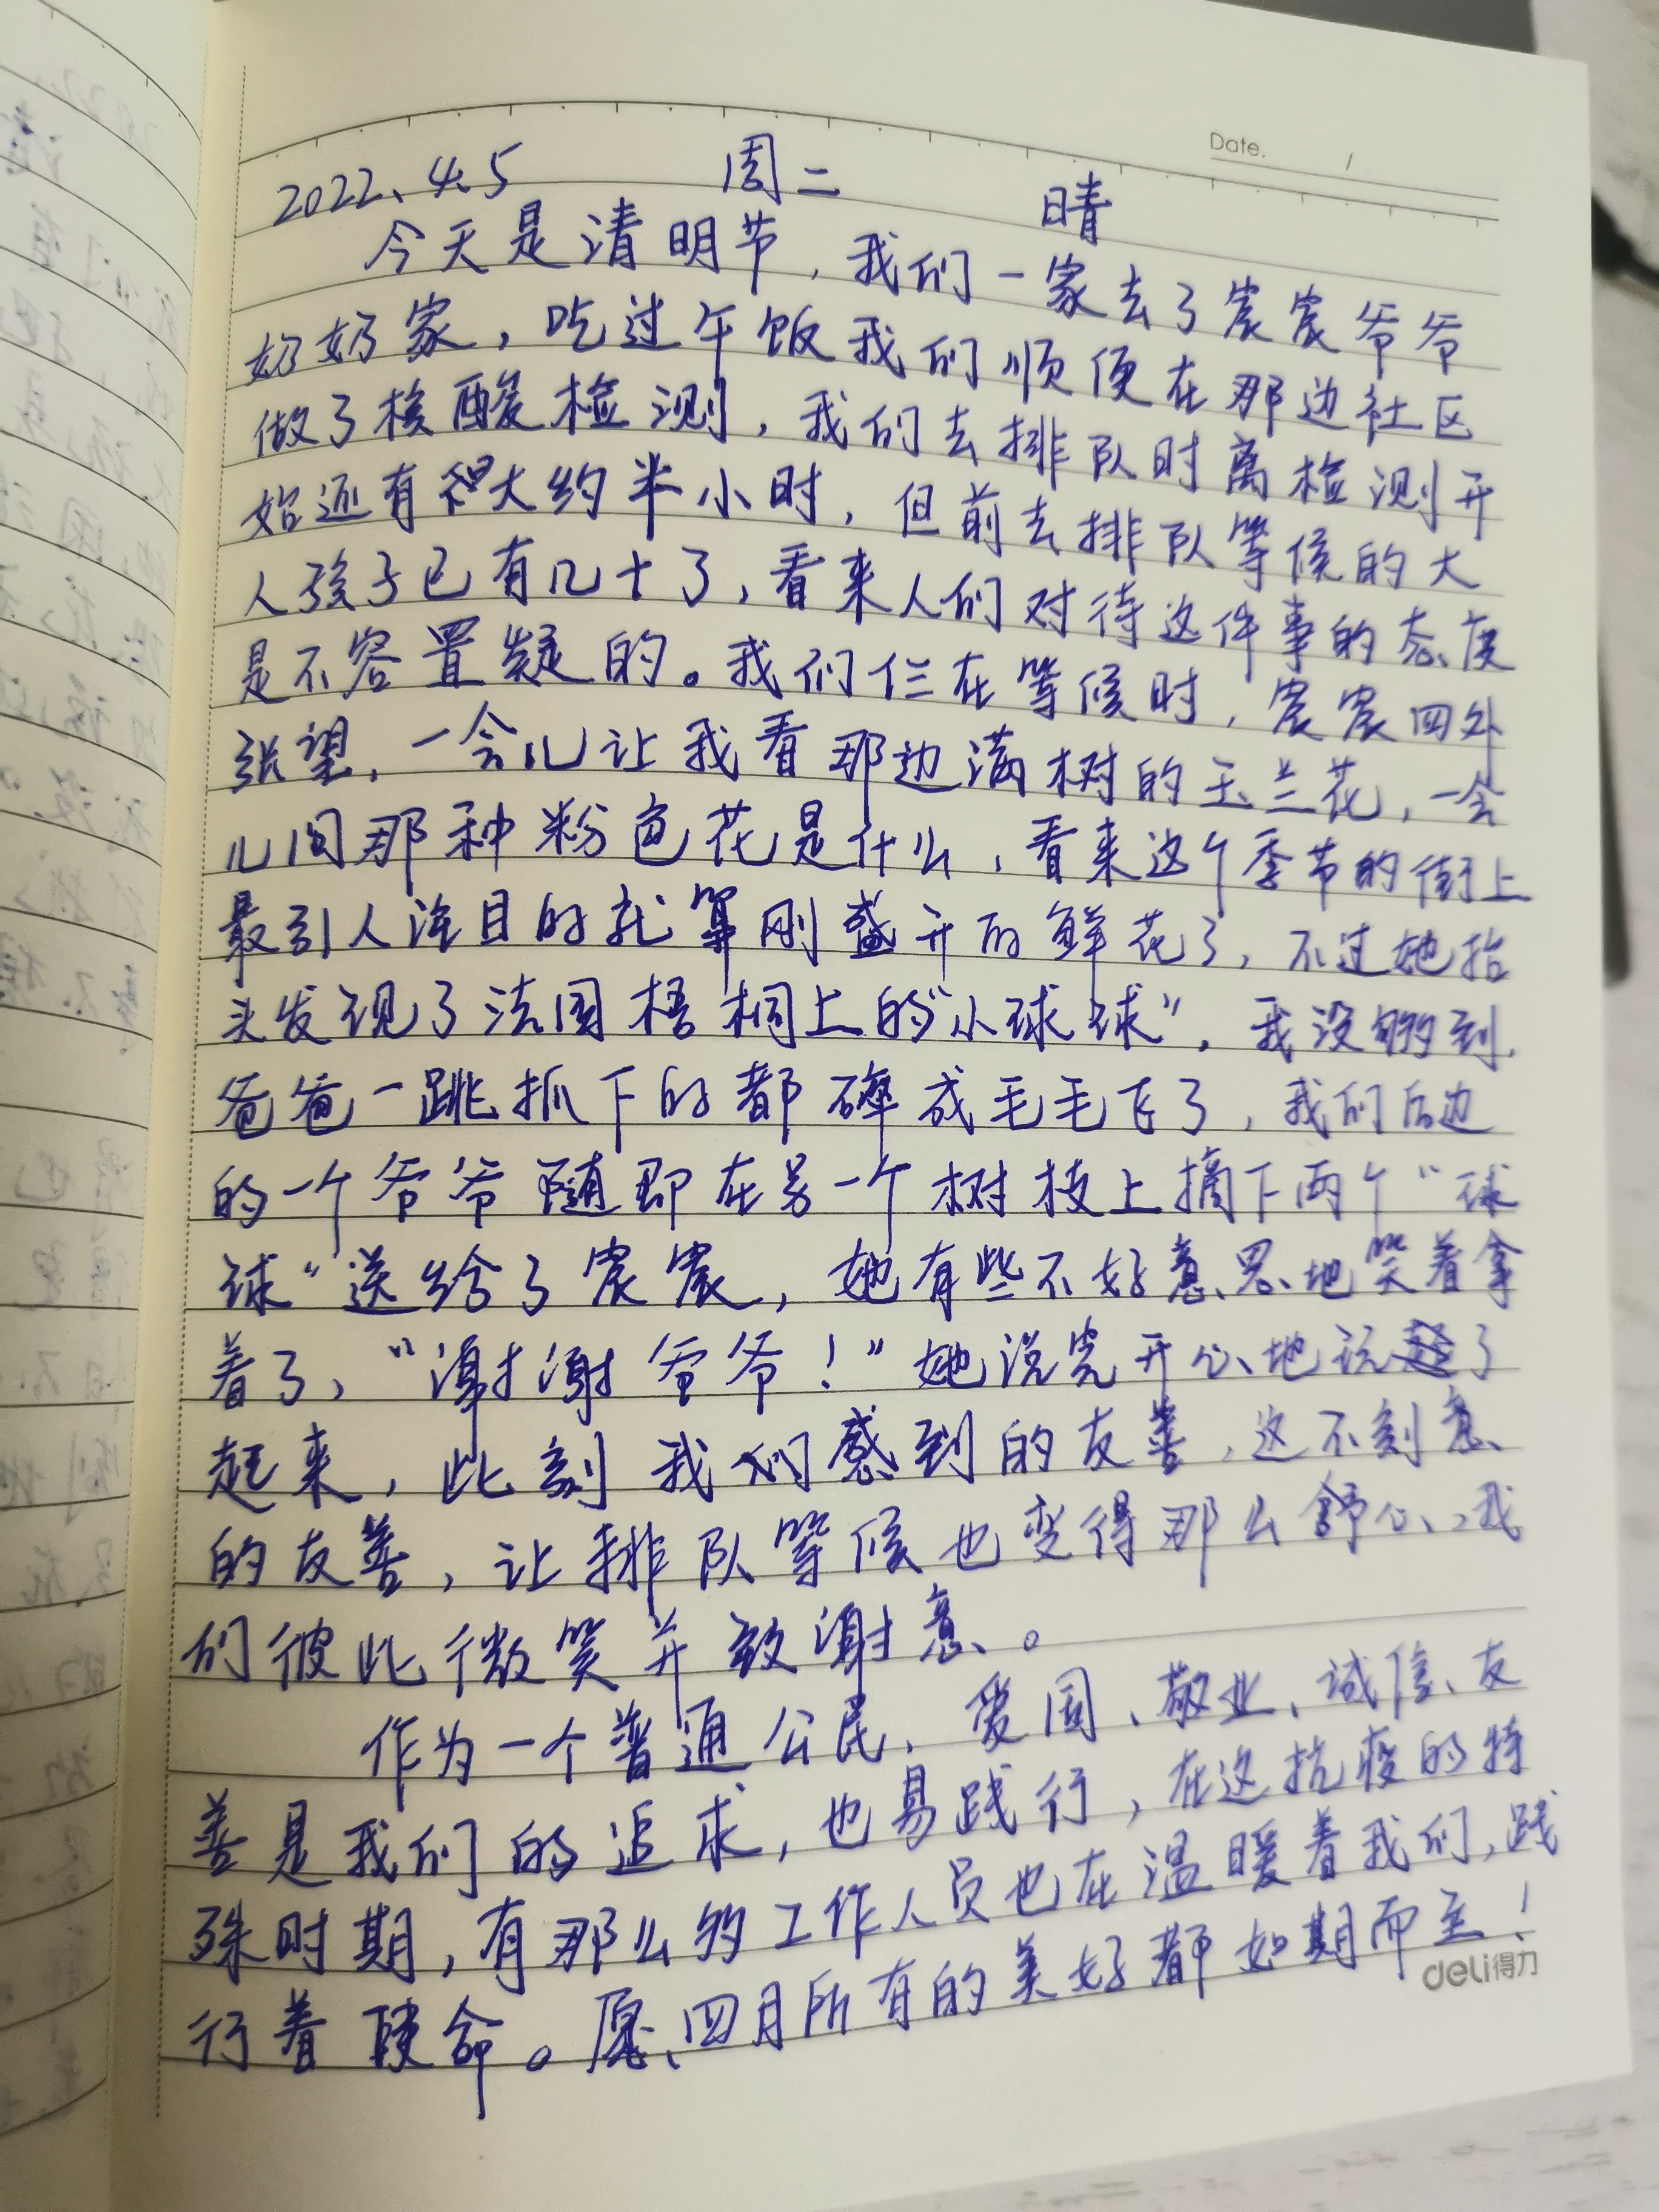 Date.
2022、4、5 周二 晴
今天是清明节,我们一家去了宸宸爷爷
奶奶家,吃过午饭我们顺便在那边社区
做了核酸检测,我们去排队时离检测开
始还有大约半小时,但前去排队等候的大
人孩子已有几十了,看来人们对待这件事的态度
是不容置疑的。我们仨在等候时,宸宸四外
张望,一会儿让我看那边满树的玉兰花,一会
儿问那种粉色花是什么,看来这个季节的街上
最引人注目的就算刚盛开的鲜花了,不过她抬
头发现了法国梧桐上的“小球球”,我没够到,
爸爸一跳抓下的都碎成毛毛飞了,我们后边
的一个爷爷随即在另一个树枝上摘下两个“球
球“送给了宸宸,她有些不好意思地笑着拿
着了,“谢谢爷爷!”她说完开心地玩了
起来,此刻我们感到的友善,这不刻意
的友善,让排队等候也变得那么舒心、我
们彼此微笑并致谢意。
作为一个普通公民、爱国、敬业、诚信、友
善是我们的追求,也易践行,在这抗疫的特
殊时期,有那么多工作人员也在温暖着我们,践
行着使命。愿四月所有的美好都如期而至!
deli得力